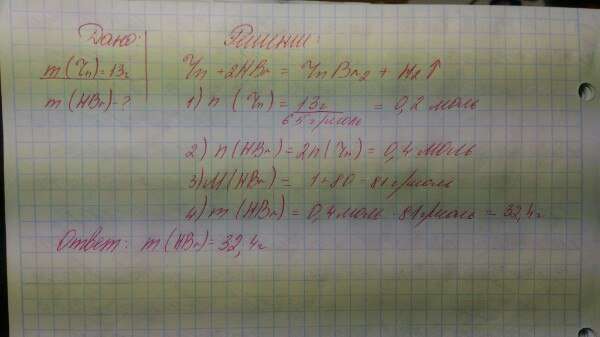 Дано:
m(Zn)=13г
m(HBr)-?
Решение:
Zn + 2HBr = ZnBr2 + H2↑
1) n(Zn) = 13г / 65г/моль = 0,2 моль
2) n(HBr) = 2n(Zn) = 0,4 моль
3) M(HBr) = 1+80=81г/моль
4) m(HBr) = 0,4 моль · 81г/моль = 32,4г
Ответ: m(HBr)=32,4г